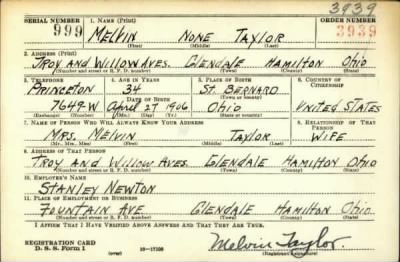 3939
SERIAL NUMBER 1. NAME (Print) ORDER NUMBER
999 MELVIN NONE TAYLOR 3939
(First) (Middle) (Last)
2. ADDRESS (Print)
TROY AND WILLOW AVES. GLENDALE HAMILTON OHIO
(Number and street or R. F. D. number) (Town) (County) (State)
3. TELEPHONE 4. AGE IN YEARS 5. PLACE OF BIRTH 6. COUNTRY OF CITIZENSHIP
PRINCETON 34 ST. BERNARD
DATE OF BIRTH (Town or county)
7649-W April 27 1906 OHIO UNITED STATES
(Exchange) (Number) (Mo.) (Day) (Yr.) (State or country)
7. NAME OF PERSON WHO WILL ALWAYS KNOW YOUR ADDRESS 8. RELATIONSHIP OF THAT PERSON
MRS. MELVIN TAYLOR WIFE
(Mr., Mrs., Miss) (First) (Middle) (Last)
9. ADDRESS OF THAT PERSON
TROY AND WILLOW AVES. GLENDALE HAMILTON OHIO
(Number and street or R. F. D. number) (Town) (County) (State)
10. EMPLOYER'S NAME
STANLEY NEWTON
11. PLACE OF EMPLOYMENT OR BUSINESS
FOUNTAIN AVE GLENDALE HAMILTON OHIO.
(Number and street or R. F. D. number) (Town) (County) (State)
I AFFIRM THAT I HAVE VERIFIED ABOVE ANSWERS AND THAT THEY ARE TRUE.
REGISTRATION CARD
D. S. S. Form 1 (over) 16-17105 Melvin Taylor.
(Registrant's signature)